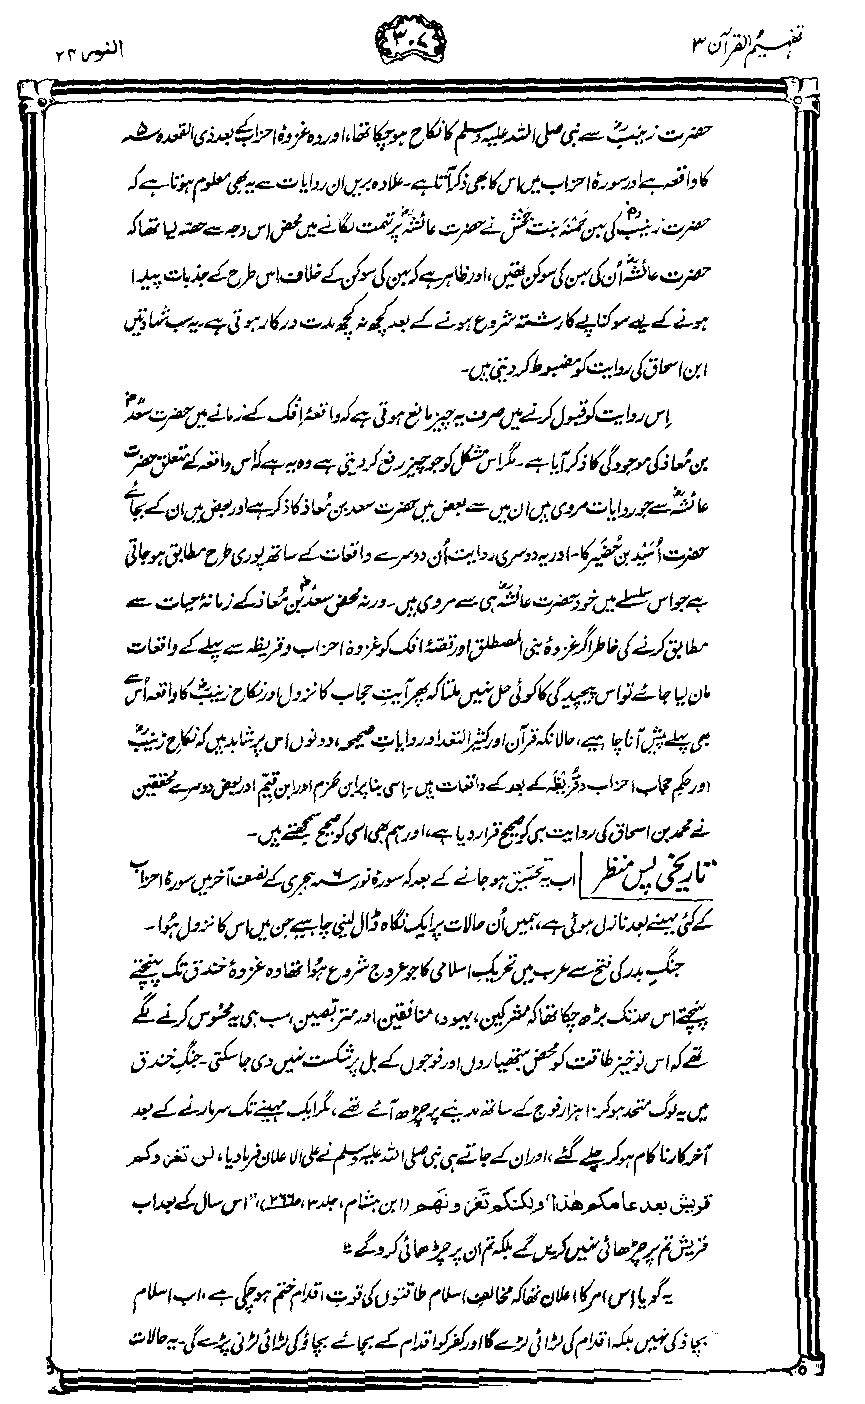 تفہیم القرآن ۳
۳۰۷
النور ۲۴
حضرت زینبؓ سے نبی صلی اللہ علیہ وسلم کا نکاح ہوچکا تھا، اور وہ غزوۂ احزاب کے بعد ذی القعدہ ۵ھ
کا واقعہ ہے اور سورۂ احزاب میں اس کا بھی ذکر آتا ہے۔ علاوہ بریں ان روایات سے یہ بھی معلوم ہوتا ہے کہ
حضرت زینبؓ کی بہن حَمنہ بنت جَحْش نے حضرت عائشہؓ پر تہمت لگانے میں محض اس وجہ سے حصہ لیا تھا کہ
حضرت عائشہؓ اُن کی بہن کی سوکن تھیں، اور ظاہر ہے کہ بہن کی سوکن کے خلاف اس طرح کے جذبات پیدا
ہونے کے لیے سوکناپے کا رشتہ شروع ہونے کے بعد کچھ نہ کچھ مدت درکار ہوتی ہے۔ یہ سب شہادتیں
ابن اسحاق کی روایت کو مضبوط کر دیتی ہیں۔
اِس روایت کو قبول کرنے میں صرف یہ چیز مانع ہوتی ہے کہ واقعۂ اِفک کے زمانے میں حضرت سعدؓ
بن مُعاذ کی موجودگی کا ذکر آیا ہے۔ مگر اس مشکل کو جو چیز رفع کر دیتی ہے وہ یہ ہے کہ اس واقعہ کے متعلق حضرت
عائشہؓ سے جو روایات مروی ہیں ان میں سے بعض میں حضرت سعد بن مُعاذ کا ذکر ہے اور بعض میں ان کے بجائے
حضرت اُسَیْد بن حُضَیر کا۔ اور یہ دوسری روایت اُن دوسرے واقعات کے ساتھ پوری طرح مطابق ہوجاتی
ہے جو اس سلسلے میں خود حضرت عائشہؓ ہی سے مروی ہیں۔ ورنہ محض سعدؓ بن مُعاذ کے زمانۂ حیات سے
مطابق کرنے کی خاطر اگر غزوۂ بنی المصطلق اور قصّۂ افک کو غزوۂ احزاب و قریظہ سے پہلے کے واقعات
مان لیا جائے تو اس پیچیدگی کا کوئی حل نہیں ملتا کہ پھر آیتِ حجاب کا نزول اور نکاحِ زینبؓ کا واقعہ اُس سے
بھی پہلے پیش آنا چاہیے، حالانکہ قرآن اور کثیر التعداد روایاتِ صحیحہ، دونوں اس پر شاہد ہیں کہ نکاحِ زینبؓ
اور حکمِ حجاب احزاب و قُریظہ کے بعد کے واقعات ہیں۔ اِسی بنا پر ابن حزم اور ابن قیم اور بعض دوسرے محققین
نے محمد بن اسحاق کی روایت ہی کو صحیح قرار دیا ہے، اور ہم بھی اسی کو صحیح سمجھتے ہیں۔
تاریخی پس منظر اب یہ تحقیق ہو جانے کے بعد کہ سورۂ نور ۶ ہجری کے نصف آخر میں سورۂ احزاب
کے کئی مہینے بعد نازل ہوئی ہے، ہمیں اُن حالات پر ایک نگاہ ڈال لینی چاہیے جن میں اس کا نزول ہُوا۔
جنگِ بدر کی فتح سے عرب میں تحریکِ اسلامی کا جو عروج شروع ہُوا تھا وہ غزوۂ خندق تک پہنچتے
پہنچتے اس حد تک بڑھ چکا تھا کہ مشرکین، یہود، منافقین اور متربصین، سب ہی یہ محسوس کرنے لگے
تھے کہ اس نوخیز طاقت کو محض ہتھیاروں اور فوجوں کے بل پر شکست نہیں دی جاسکتی۔ جنگِ خندق
میں یہ لوگ متحد ہو کر ۱۰ ہزار فوج کے ساتھ مدینے پر چڑھ آئے تھے، مگر ایک مہینے تک سر مارنے کے بعد
آخر کار ناکام ہو کر چلے گئے، اور ان کے جاتے ہی نبی صلی اللہ علیہ وسلم نے علی الاعلان فرما دیا، لن تغزوکم
قریش بعد عامکم ھٰذا ولٰکنکم تغزونھم (ابن ہشام، جلد ۳، ص ۲۶۶)، "اس سال کے بعد اب
قریش تم پر چڑھائی نہیں کریں گے بلکہ تم ان پر چڑھائی کرو گے"
یہ گویا اِس امر کا اعلان تھا کہ مخالفِ اسلام طاقتوں کی قوتِ اقدام ختم ہوچکی ہے، اب اسلام
بچاؤ کی نہیں بلکہ اقدام کی لڑائی لڑے گا اور کفر کو اقدام کے بجائے بچاؤ کی لڑائی لڑنی پڑے گی۔ یہ حالات